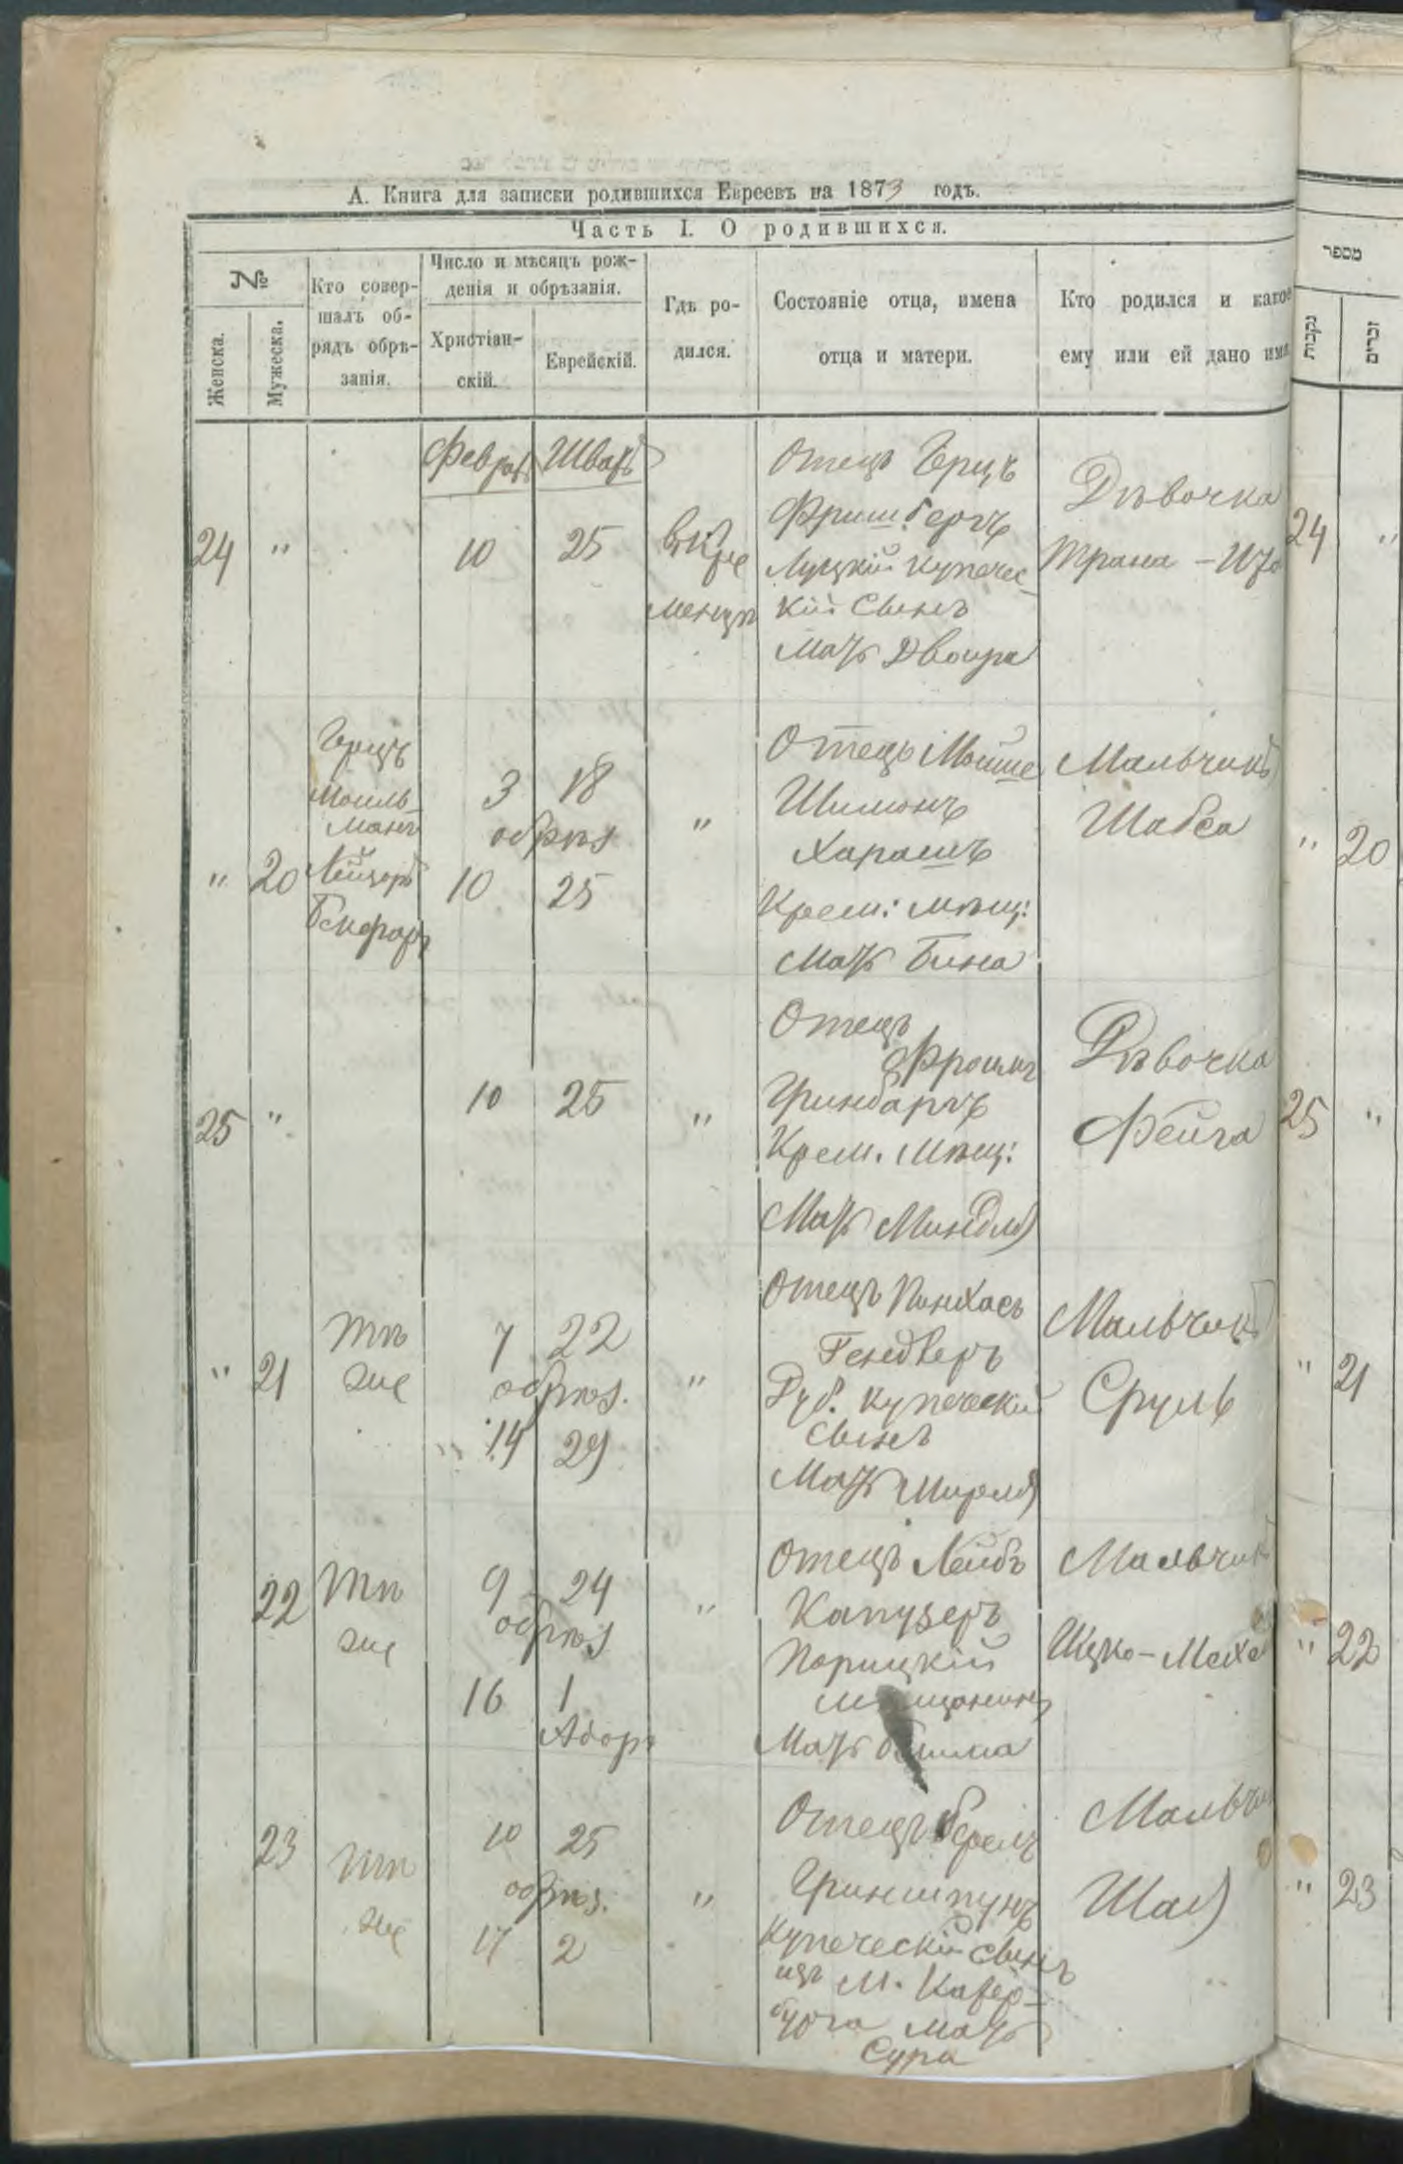 А. Книга для записки родившихся Евреевъ на 1873 годъ.
Часть I. О родившихся.
№
Женска.
Мужеска.
Кто совер-
шалъ об-
рядъ обрѣ-
занія.
Число и мѣсяцъ рож-
денія и обрѣзанія.
Христіан-
скій.
Еврейскій.
Гдѣ ро-
дился.
Состояніе отца, имена
отца и матери.
Кто родился и какое
ему или ей дано имя
מספר
נקבות
זכרים
Феврал Шват
24 " 10 25
въ Кре
менцѣ
Отецъ Герцъ
Фришбергъ
Луцкій купечес-
кій сынъ
Мать Двойра
Дѣвочка
Трана -
24 "
" 20
Герцъ
Мошль-
манъ
Лейзеръ
3 18
обрѣз
10 25
"
Отецъ Мойше
Шимонъ
Харашъ
Крем: мѣщ:
Мать Бина
Мальчикъ
Шабса
" 20
25 " 10 25 "
Отецъ
Фроимъ
Гринбаргъ
Крем. мѣщ:
Мать Миндля
Дѣвочка
Фейга
25 "
" 21
Тѣ
же
7 22
обрѣз.
14 29
"
Отецъ Пинхасъ
Гендлеръ
Дуб. купеческій
сынъ
Мать Мирля
Мальчикъ
Сруль
" 21
22
Тѣ
же
9 24
обрѣз
16 1
Адоръ
"
Отецъ Лейбъ
Капузеръ
Порицкій
мѣщанинъ
Мать
Мальчик
Ицко - Мехе
" 22
23
Тѣ
же
10 25
обрѣз.
17 2
"
Отецъ Берелъ
Гриншпунъ
купеческій сынъ
изъ м. Катер-
бурга Мать
Сура
Мальчи
Шая
" 23